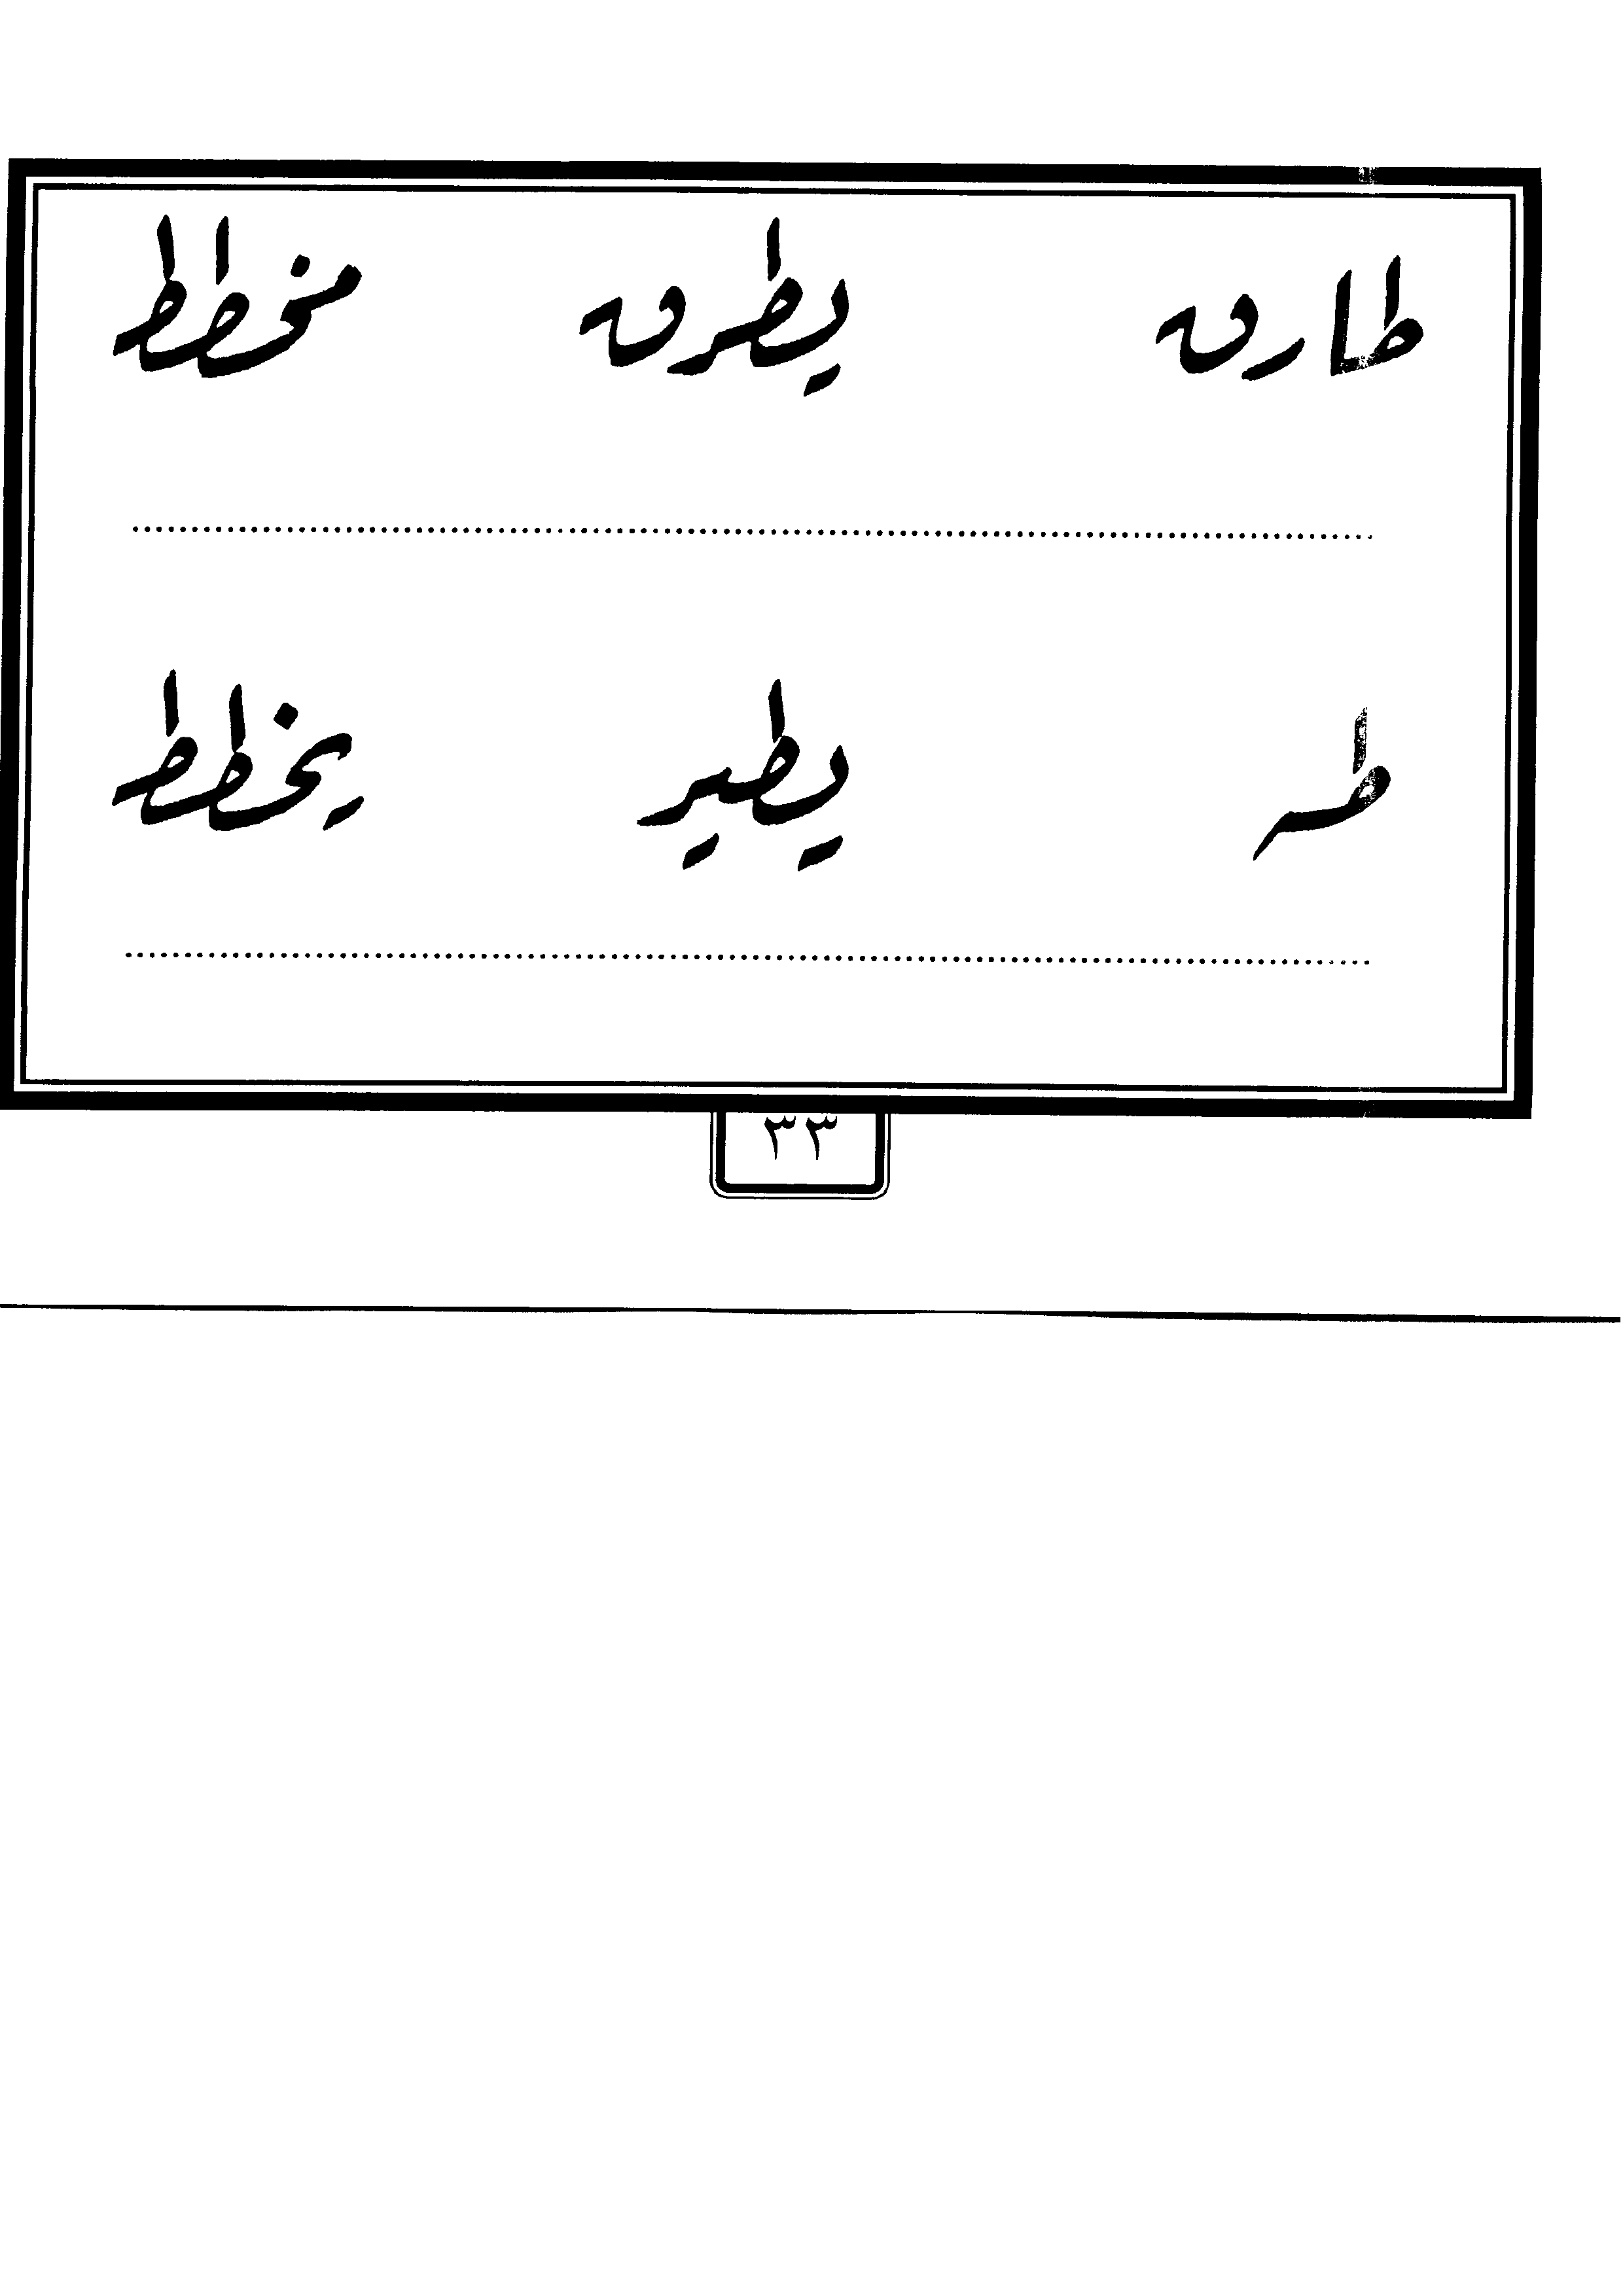 طارق يطرق مخطط
طه يطير يخطط
٣٣